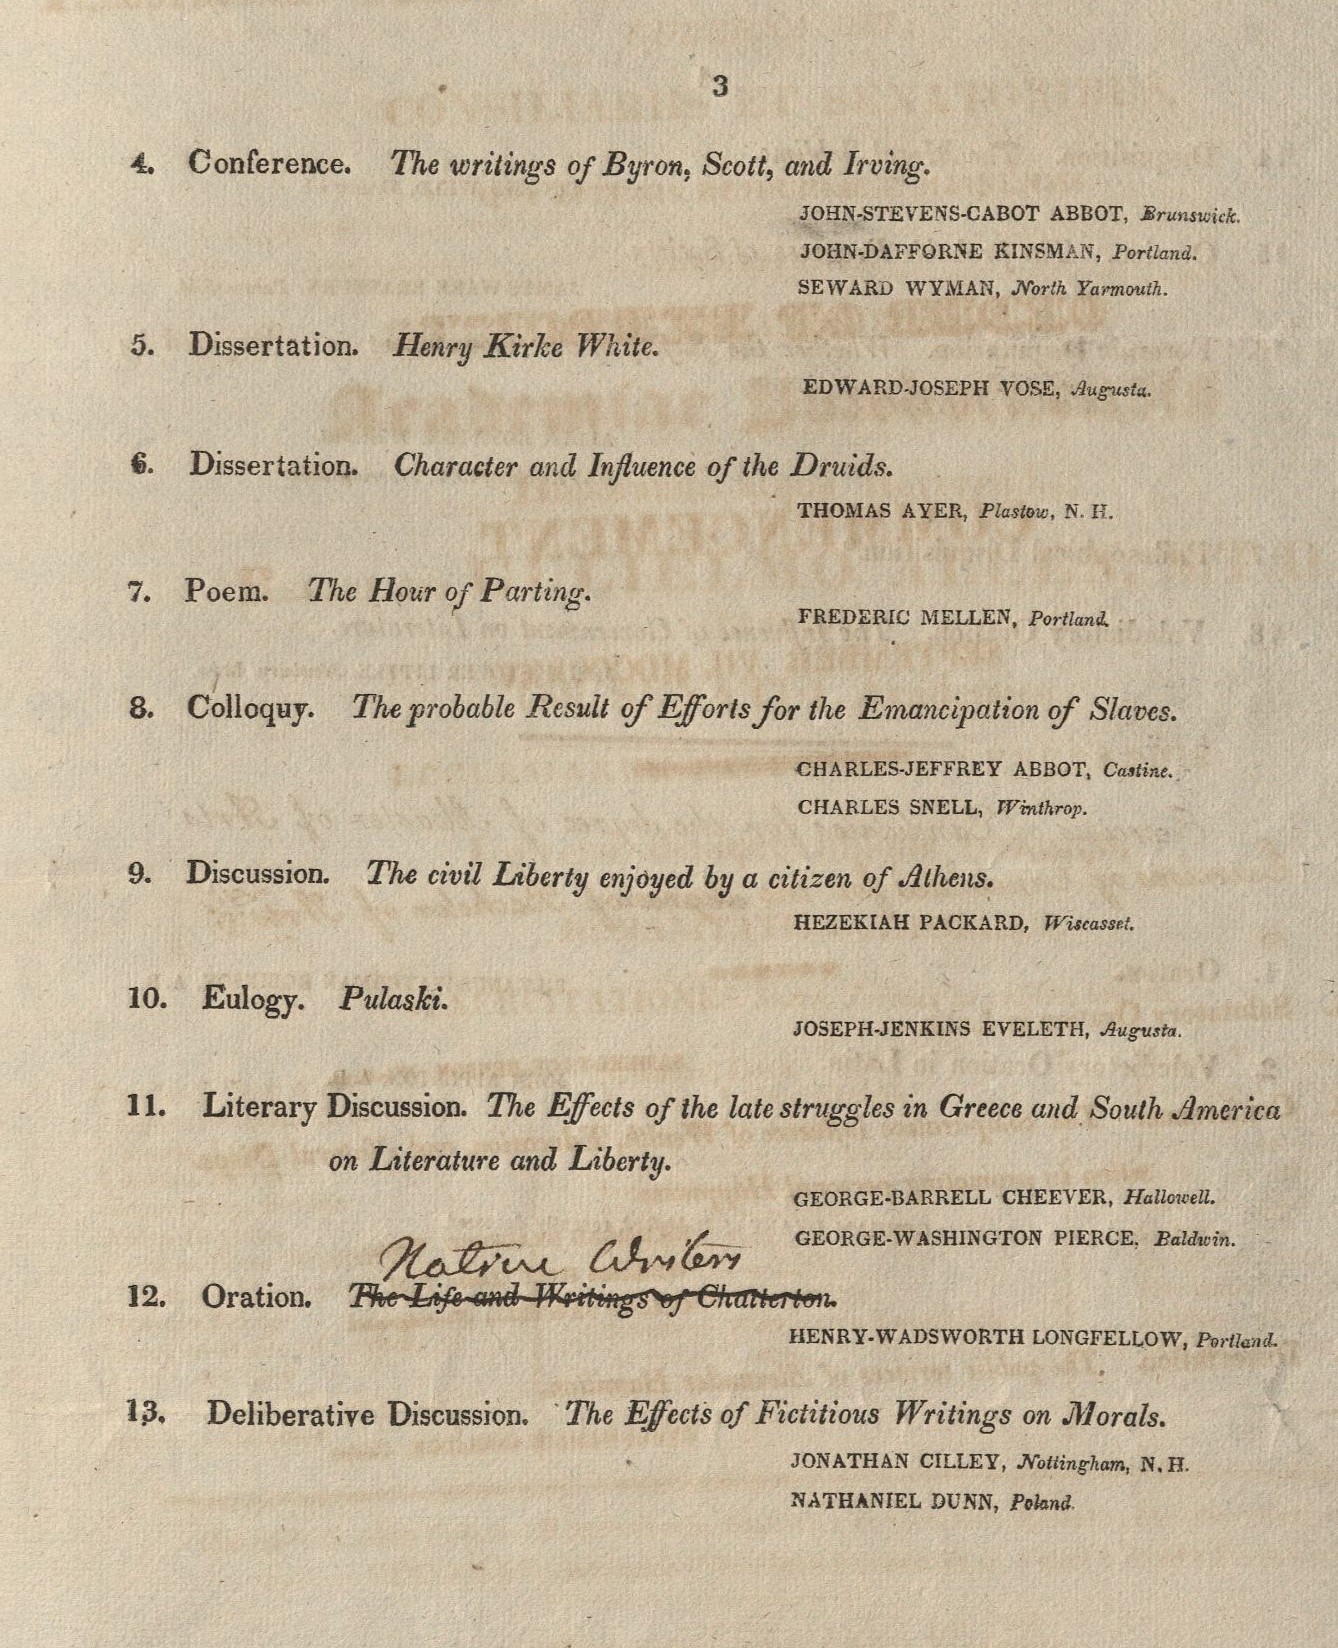 3
4. Conference. The writings of Byron, Scott, and Irving.
JOHN-STEVENS-CABOT ABBOT, Brunswick.
JOHN-DAFFORNE KINSMAN, Portland.
SEWARD WYMAN, North Yarmouth.
5. Dissertation. Henry Kirke White.
EDWARD-JOSEPH VOSE, Augusta.
6. Dissertation. Character and Influence of the Druids.
THOMAS AYER, Plastow, N. H.
7. Poem. The Hour of Parting.
FREDERIC MELLEN, Portland.
8. Colloquy. The probable Result of Efforts for the Emancipation of Slaves.
CHARLES-JEFFREY ABBOT, Castine.
CHARLES SNELL, Winthrop.
9. Discussion. The civil Liberty enjoyed by a citizen of Athens.
HEZEKIAH PACKARD, Wiscasset.
10. Eulogy. Pulaski.
JOSEPH-JENKINS EVELETH, Augusta.
11. Literary Discussion. The Effects of the late struggles in Greece and South America
on Literature and Liberty.
GEORGE-BARRELL CHEEVER, Hallowell.
GEORGE-WASHINGTON PIERCE, Baldwin.
Native Writers
12. Oration. The Life and Writings of Chatterton.
HENRY-WADSWORTH LONGFELLOW, Portland.
13. Deliberative Discussion. The Effects of Fictitious Writings on Morals.
JONATHAN CILLEY, Nottingham, N. H.
NATHANIEL DUNN, Poland.